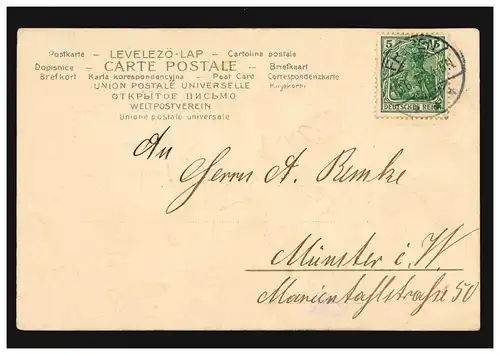 Postkarte – LEVELEZŐ-LAP – Cartolina postale
Dopisnice – CARTE POSTALE – Briefkaart
Brefkort Karta korespondencyjna – Post Card Correspondenzkarte
UNION POSTALE UNIVERSELLE Kirjekortti
ОТКРЫТОЕ ПИСЬМО
WELTPOSTVEREIN
Unione postale universale
5
DEUTSCHES REICH
An
Herrn A. Remke
Münster i. W.
Marientahlstraße 50